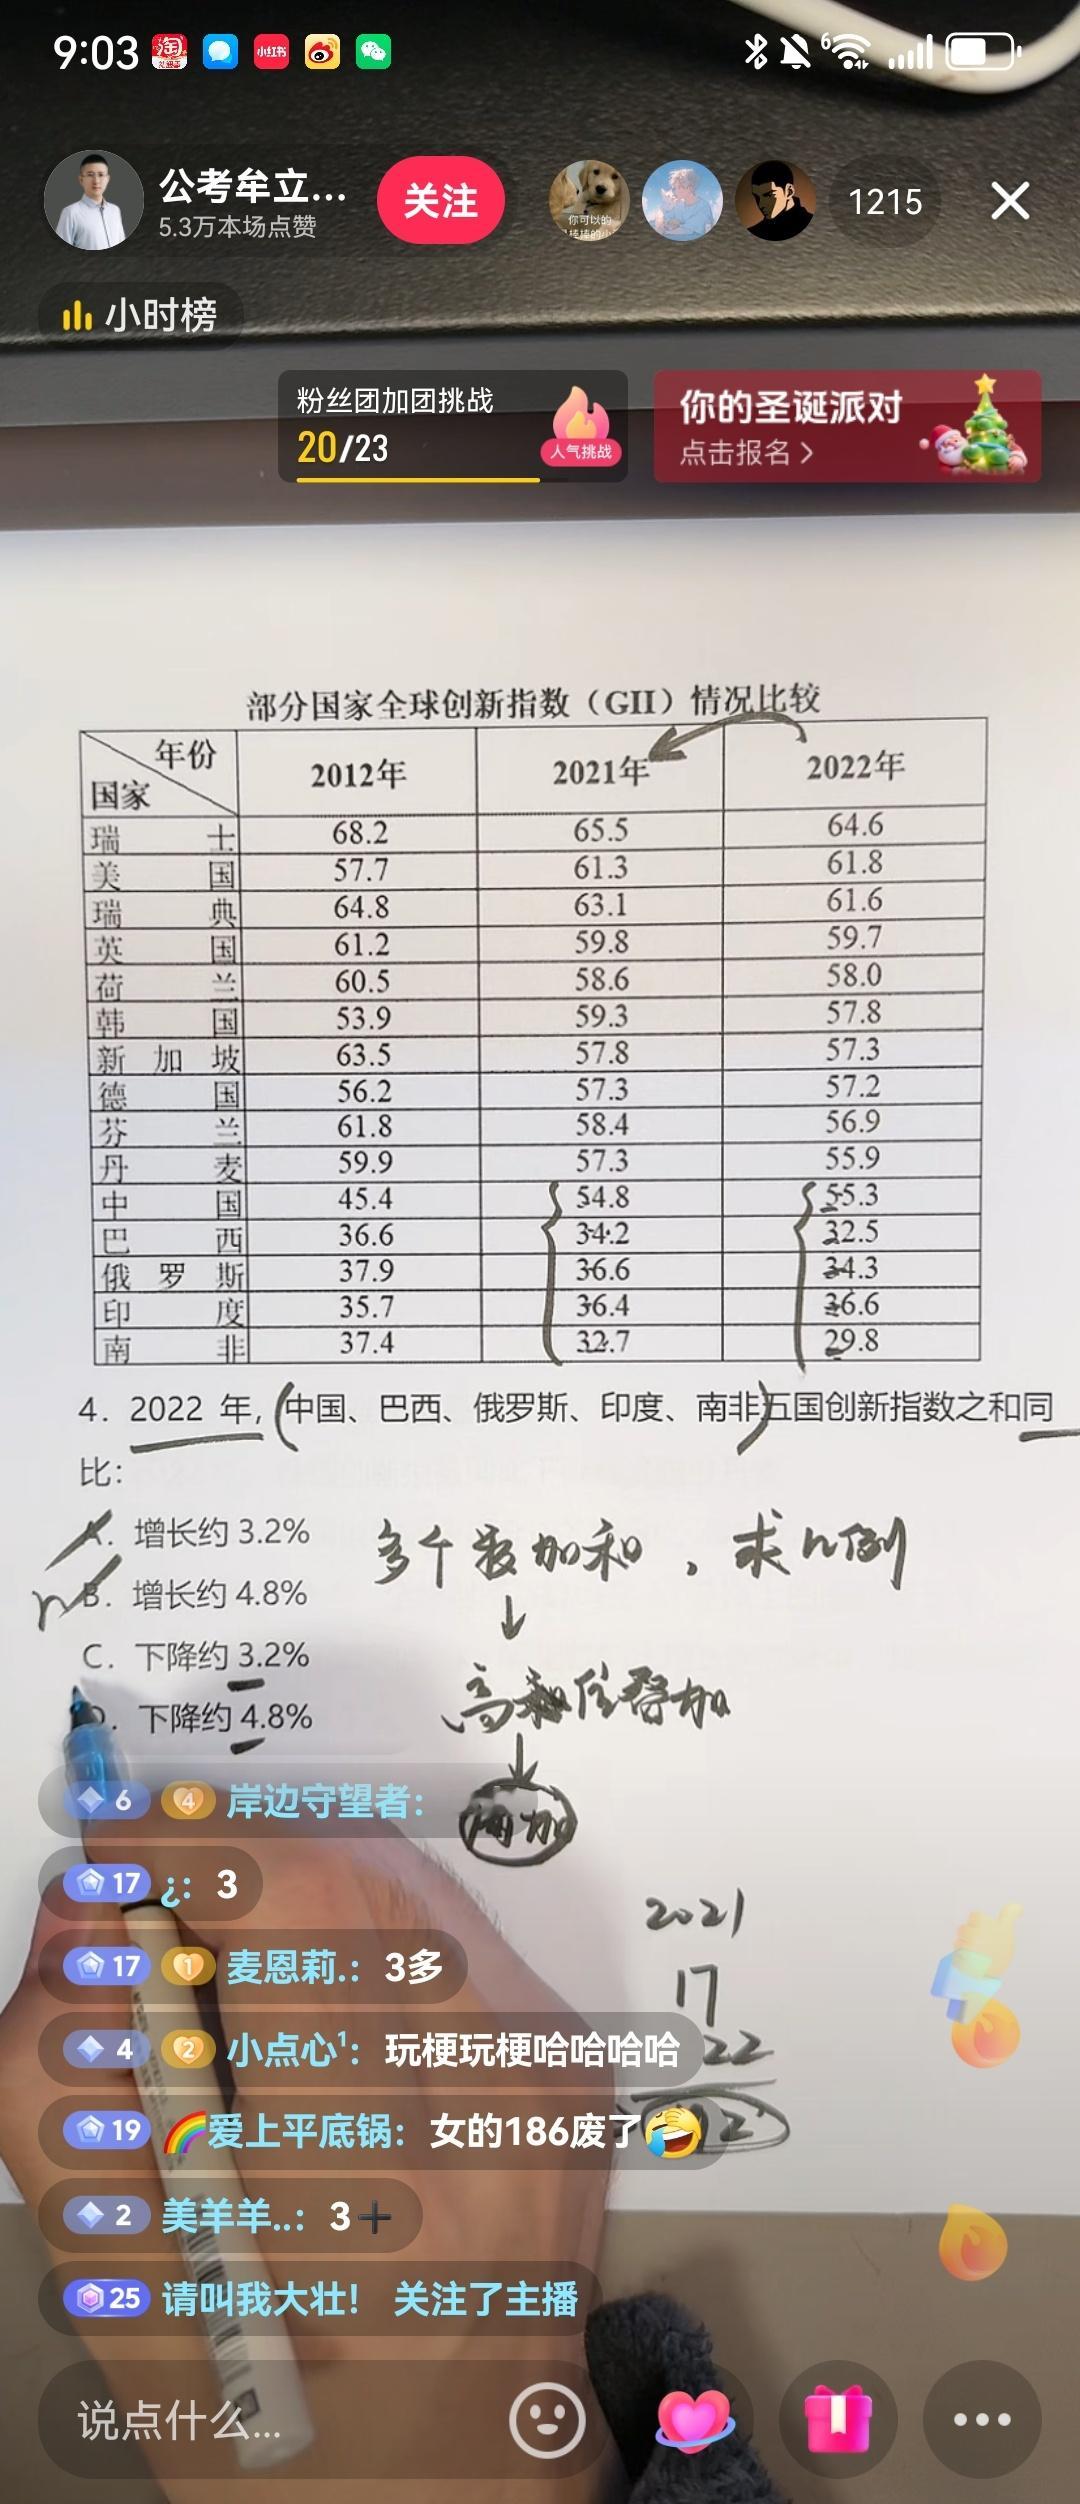 9:03
淘
小红书
6
公考牟立...
5.3万本场点赞
关注
你可以的
1215
小时榜
粉丝团加团挑战
20/23
人气挑战
你的圣诞派对
点击报名 >
部分国家全球创新指数（GII）情况比较
年份 国家 2012年 2021年 2022年
瑞士 68.2 65.5 64.6
美国 57.7 61.3 61.8
瑞典 64.8 63.1 61.6
英国 61.2 59.8 59.7
荷兰 60.5 58.6 58.0
韩国 53.9 59.3 57.8
新加坡 63.5 57.8 57.3
德国 56.2 57.3 57.2
芬兰 61.8 58.4 56.9
丹麦 59.9 57.3 55.9
中国 45.4 54.8 55.3
巴西 36.6 34.2 32.5
俄罗斯 37.9 36.6 34.3
印度 35.7 36.4 36.6
南非 37.4 32.7 29.8
4. 2022 年，中国、巴西、俄罗斯、印度、南非五国创新指数之和同
比：
A. 增长约 3.2%
多个数加和，求比例
B. 增长约 4.8%
C. 下降约 3.2%
高位叠加
D. 下降约 4.8%
6 4 岸边守望者：
17 ¿： 3
2021
17 1 麦恩莉.： 3多
17
4 2 小点心¹： 玩梗玩梗哈哈哈哈
22
19 爱上平底锅： 女的186废了
2 美羊羊..： 3
25 请叫我大壮！ 关注了主播
说点什么...